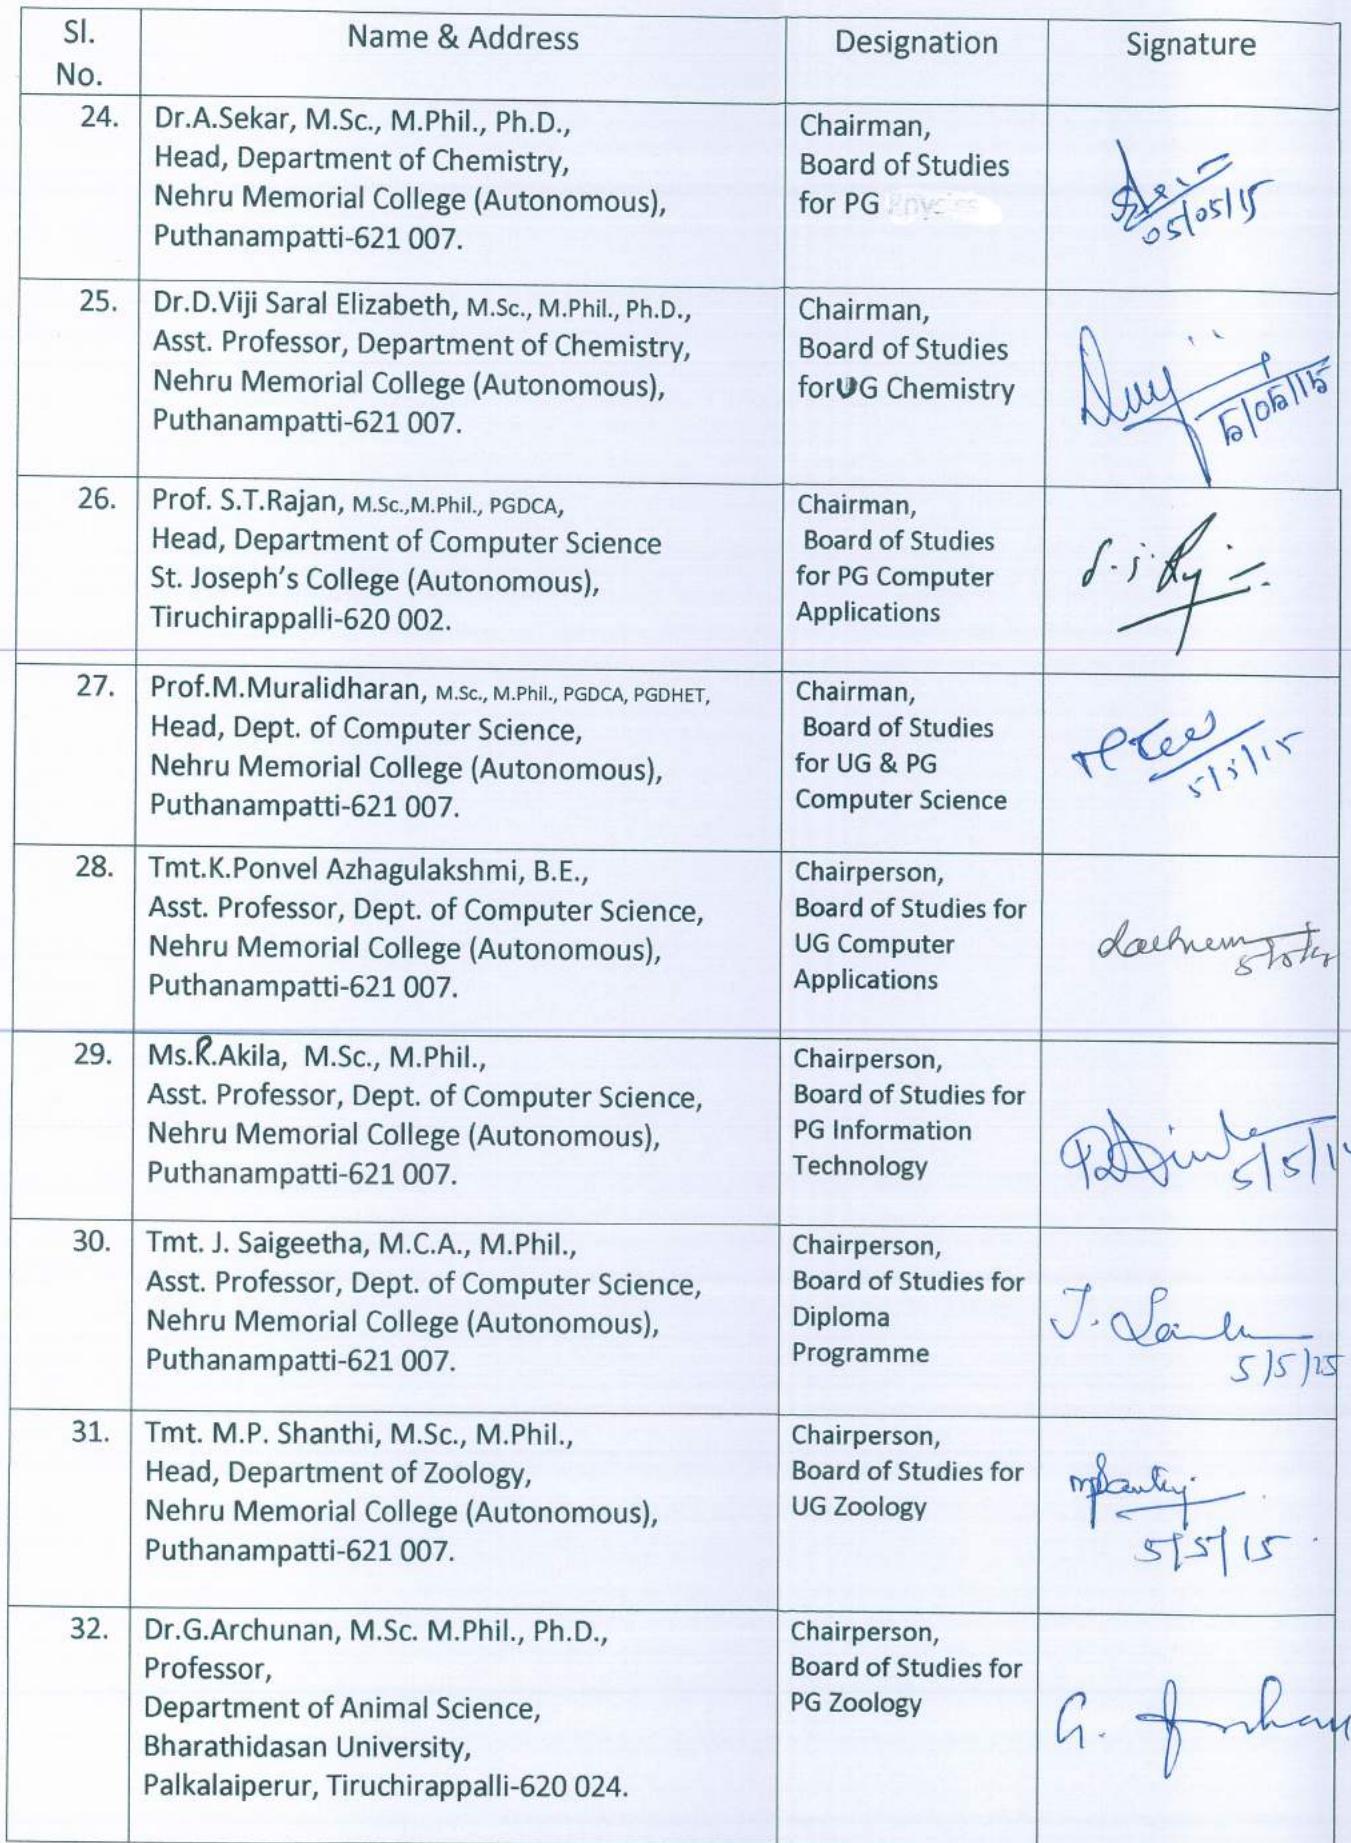 Sl. No.
Name & Address
Designation
Signature
24.
Dr.A.Sekar, M.Sc., M.Phil., Ph.D.,
Head, Department of Chemistry,
Nehru Memorial College (Autonomous),
Puthanampatti-621 007.
Chairman,
Board of Studies
for PG
05/05/15
25.
Dr.D.Viji Saral Elizabeth, M.Sc., M.Phil., Ph.D.,
Asst. Professor, Department of Chemistry,
Nehru Memorial College (Autonomous),
Puthanampatti-621 007.
Chairman,
Board of Studies
forUG Chemistry
5/05/15
26.
Prof. S.T.Rajan, M.Sc.,M.Phil., PGDCA,
Head, Department of Computer Science
St. Joseph's College (Autonomous),
Tiruchirappalli-620 002.
Chairman,
Board of Studies
for PG Computer
Applications
27.
Prof.M.Muralidharan, M.Sc., M.Phil., PGDCA, PGDHET,
Head, Dept. of Computer Science,
Nehru Memorial College (Autonomous),
Puthanampatti-621 007.
Chairman,
Board of Studies
for UG & PG
Computer Science
5/5/15
28.
Tmt.K.Ponvel Azhagulakshmi, B.E.,
Asst. Professor, Dept. of Computer Science,
Nehru Memorial College (Autonomous),
Puthanampatti-621 007.
Chairperson,
Board of Studies for
UG Computer
Applications
29.
Ms.R.Akila, M.Sc., M.Phil.,
Asst. Professor, Dept. of Computer Science,
Nehru Memorial College (Autonomous),
Puthanampatti-621 007.
Chairperson,
Board of Studies for
PG Information
Technology
5/5/1
30.
Tmt. J. Saigeetha, M.C.A., M.Phil.,
Asst. Professor, Dept. of Computer Science,
Nehru Memorial College (Autonomous),
Puthanampatti-621 007.
Chairperson,
Board of Studies for
Diploma
Programme
J.
5/5/15
31.
Tmt. M.P. Shanthi, M.Sc., M.Phil.,
Head, Department of Zoology,
Nehru Memorial College (Autonomous),
Puthanampatti-621 007.
Chairperson,
Board of Studies for
UG Zoology
5/5/15
32.
Dr.G.Archunan, M.Sc. M.Phil., Ph.D.,
Professor,
Department of Animal Science,
Bharathidasan University,
Palkalaiperur, Tiruchirappalli-620 024.
Chairperson,
Board of Studies for
PG Zoology
G.